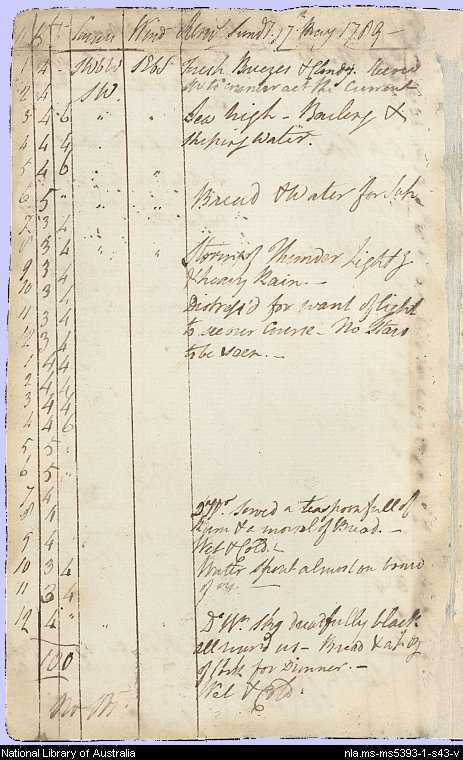 H K F Courses Wind Rem Sundy. 17th. May 1789 —
1 4 - SWbW SEbS Fresh Breezes & Cloudy. Steered
2 4 SW. the Current
3 4 6 " " Sea high - Bailing &
4 4 4 " " shiping Water.
5 4 6 " "
6 5 " " " Bread & Water for Sup
7 3 4
8 3 4 " " Storms of Thunder Lightg
9 3 4 & heavy Rain. —
10 3 4
11 3 4 Distress'd for want of light
12 3 4 to see our Course - No Stars
1 4 4 to be seen. —
2 4 4
3 4 4
4 4 6
5 5 "
6 5 "
7 4
8 4 Dr. Wr. Served a teaspoonfull of
Rum & a morsel of Bread. —
9 4 Wet & Cold. —
10 3 4 Water Spout almost on board
11 3 4 of us. —
12 4 " " " Do. Wr. sky dreadfully black
all round us - Bread & ½ oz
100 of Pork for Dinner. —
Wet & Cold.
No
National Library of Australia
nla.ms-ms5393-1-s43-v